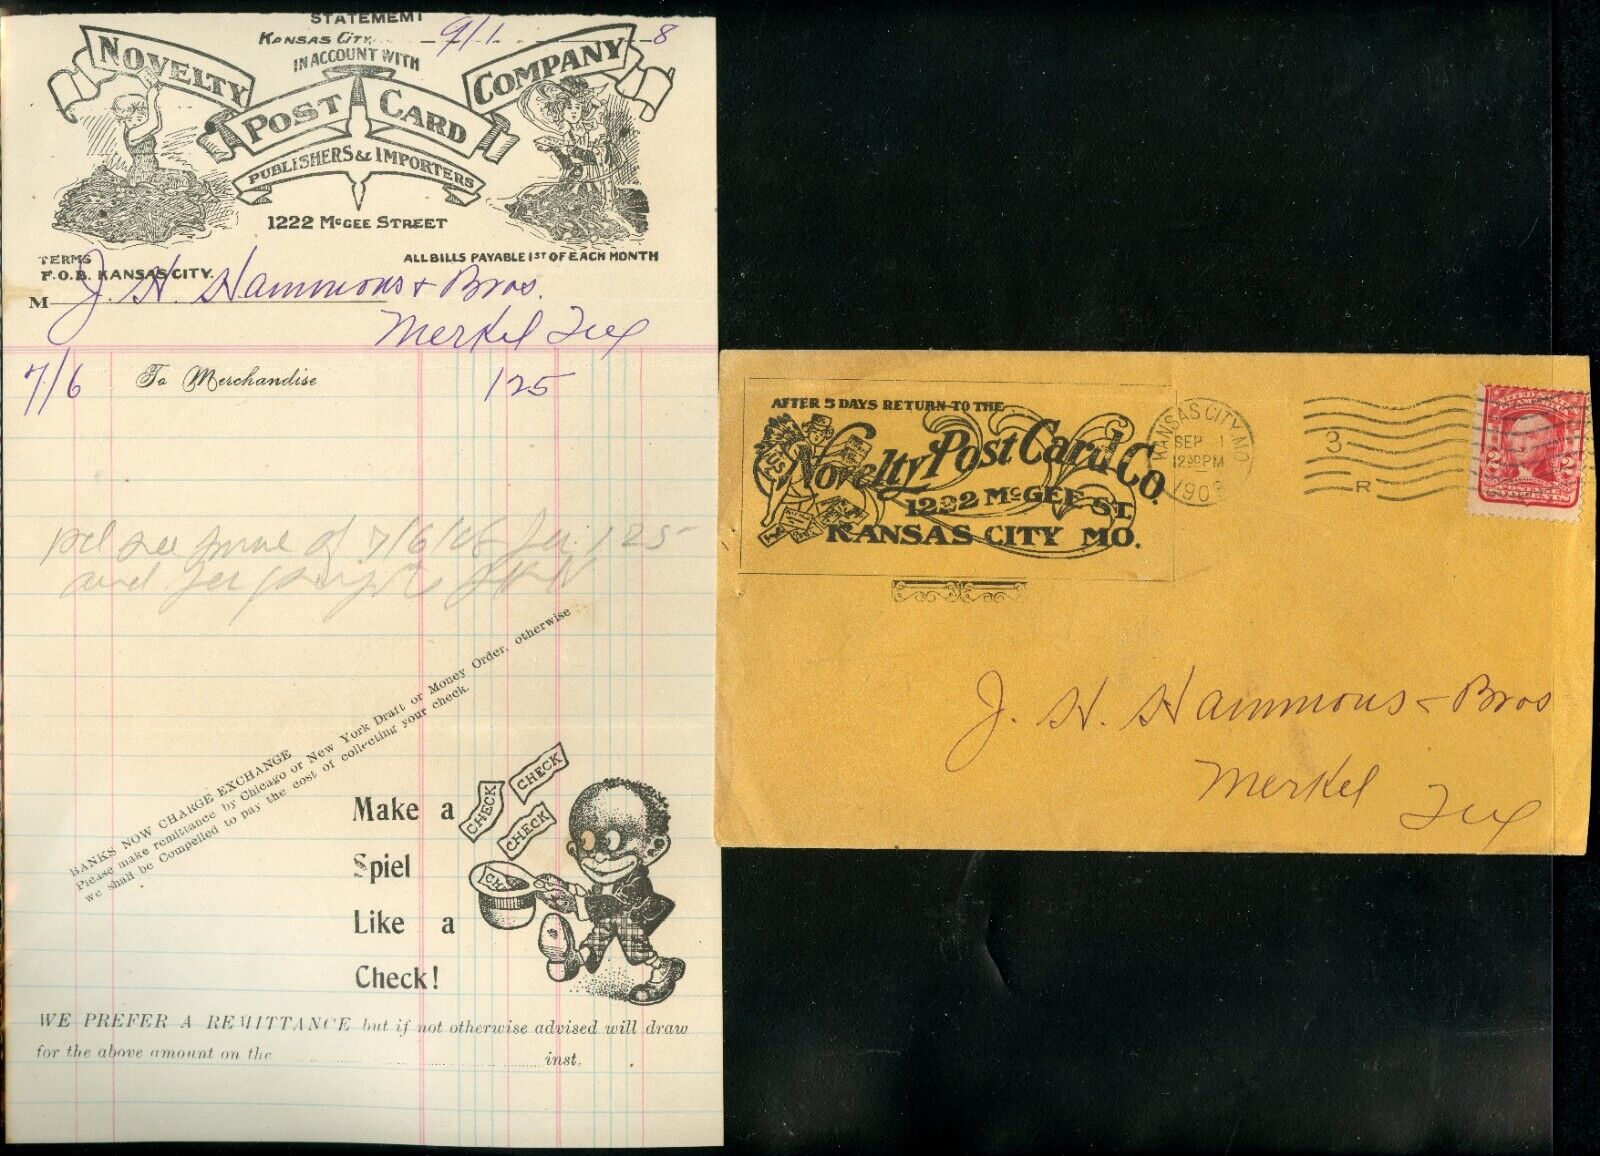 STATEMENT
Kansas City, 9/1 8
IN ACCOUNT WITH
NOVELTY POST CARD COMPANY
PUBLISHERS & IMPORTERS
1222 McGEE STREET
TERMS
F.O.B. KANSAS CITY.
ALL BILLS PAYABLE 1ST OF EACH MONTH
M J. H. Hammons & Bros.
Merkel Tex
7/6 To Merchandise 125
7/6/08 125
BANKS NOW CHARGE EXCHANGE
Please make remittance by Chicago or New York Draft or Money Order, otherwise
we shall be Compelled to pay the cost of collecting your check.
CHECK
CHECK
CHECK
CH
Make a
Spiel
Like a
Check!
WE PREFER A REMITTANCE but if not otherwise advised will draw
for the above amount on the inst.
AFTER 5 DAYS RETURN TO THE
U.S.
Novelty Post Card Co.
1222 McGEE ST.
KANSAS CITY MO.
KANSAS CITY, MO
SEP 1
12 30 PM
190
3
R
2 2
J. H. Hammons & Bros
Merkel Tex